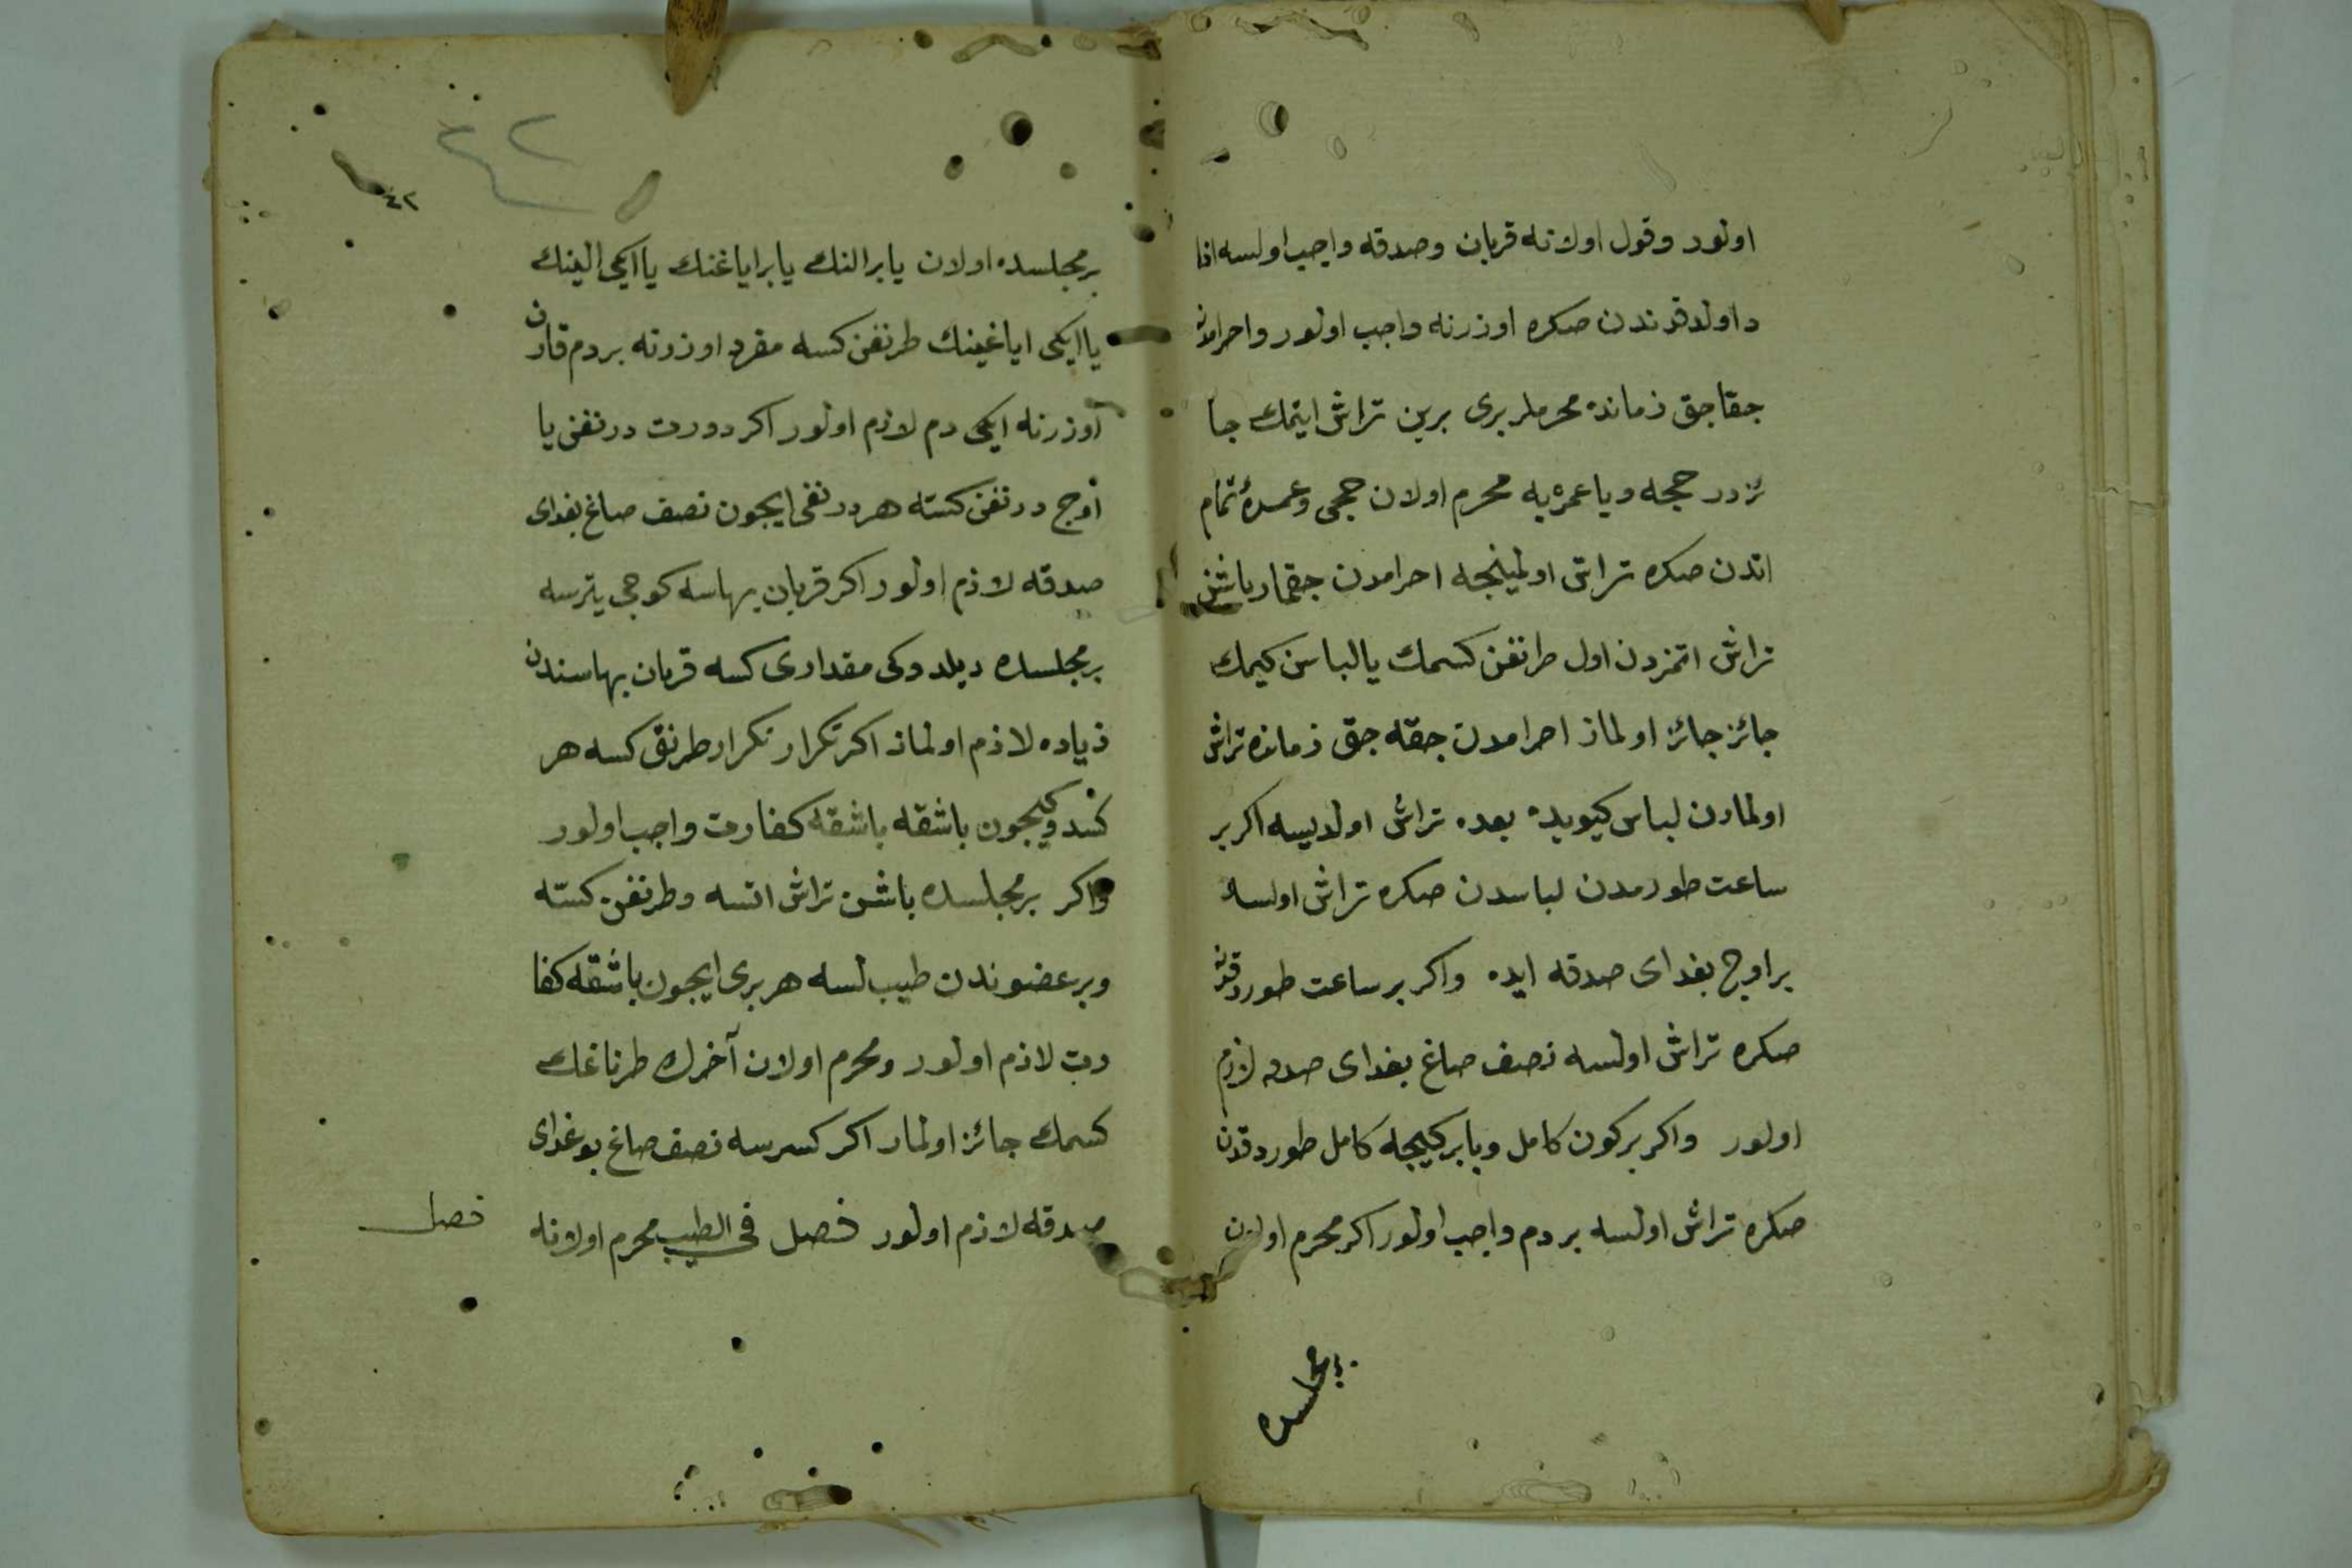 اولور وقول اولانه قربان وصدقه واجب اولسه اذا
د اولدقدندن صكره اوزرنه واجب اولور واحرامدن
جقاجق زمانده محرملر برى برين تراش ايتمك جا
ئزدر حجه ويا عمره يه محرم اولان حجى وعمرۀ تمام
اتدن صكره تراش اولمينجه احرامدن جقمار باشن
تراش اتمزدن اول طرنفن كسمك يا لباس كيمك
جائز جائز اولماز احرامدن جقه جق زمانده تراش
اولمادن لباس كيويده بعده تراش اولديسه اكر بر
ساعت طورمدن لباسدن صكره تراش اولسه
بر اوج بغداى صدقه ايده واكر بر ساعت طوردقدن
صكره تراش اولسه نصف صاغ بغداى صدقه لازم
اولور واكر بر كون كامل ويا بر كيجه كامل طوردقدن
صكره تراش اولسه بر دم واجب اولور اكر محرم اولان
بر مجلسده
٤٢
بر مجلسده اولان يا بر النك يا بر اياغنك يا ايكى الينك
يا ايكى اياغينك طرنفن كسه مفرد اوزرنه بر دم قارن
اوزرنه ايكى دم لازم اولور اكر دورت درنفن يا
اوج درنفن كسته هر درنفى ايچون نصف صاغ بغداى
صدقه لازم اولور اكر قربان بهاسه كوجى يترسه
بر مجلسده ديلدوكى مقدارى كسه قربان بهاسندن
زياده لازم اولماز اكر تكرار تكرار طرنق كسه هر
كندوكيچون باشقه باشقه كفارت واجب اولور
واكر بر مجلسده باشن تراش اتسه وطرنفن كسته
وبر عضوندن طيب لسه هر برى ايچون باشقه كفا
رت لازم اولور ومحرم اولان آخرك طرناغك
كسمك جائز اولمار اكر كسرسه نصف صاغ بوغداى
صدقه لازم اولور فصل فى الطيب محرم اولانه
فصل